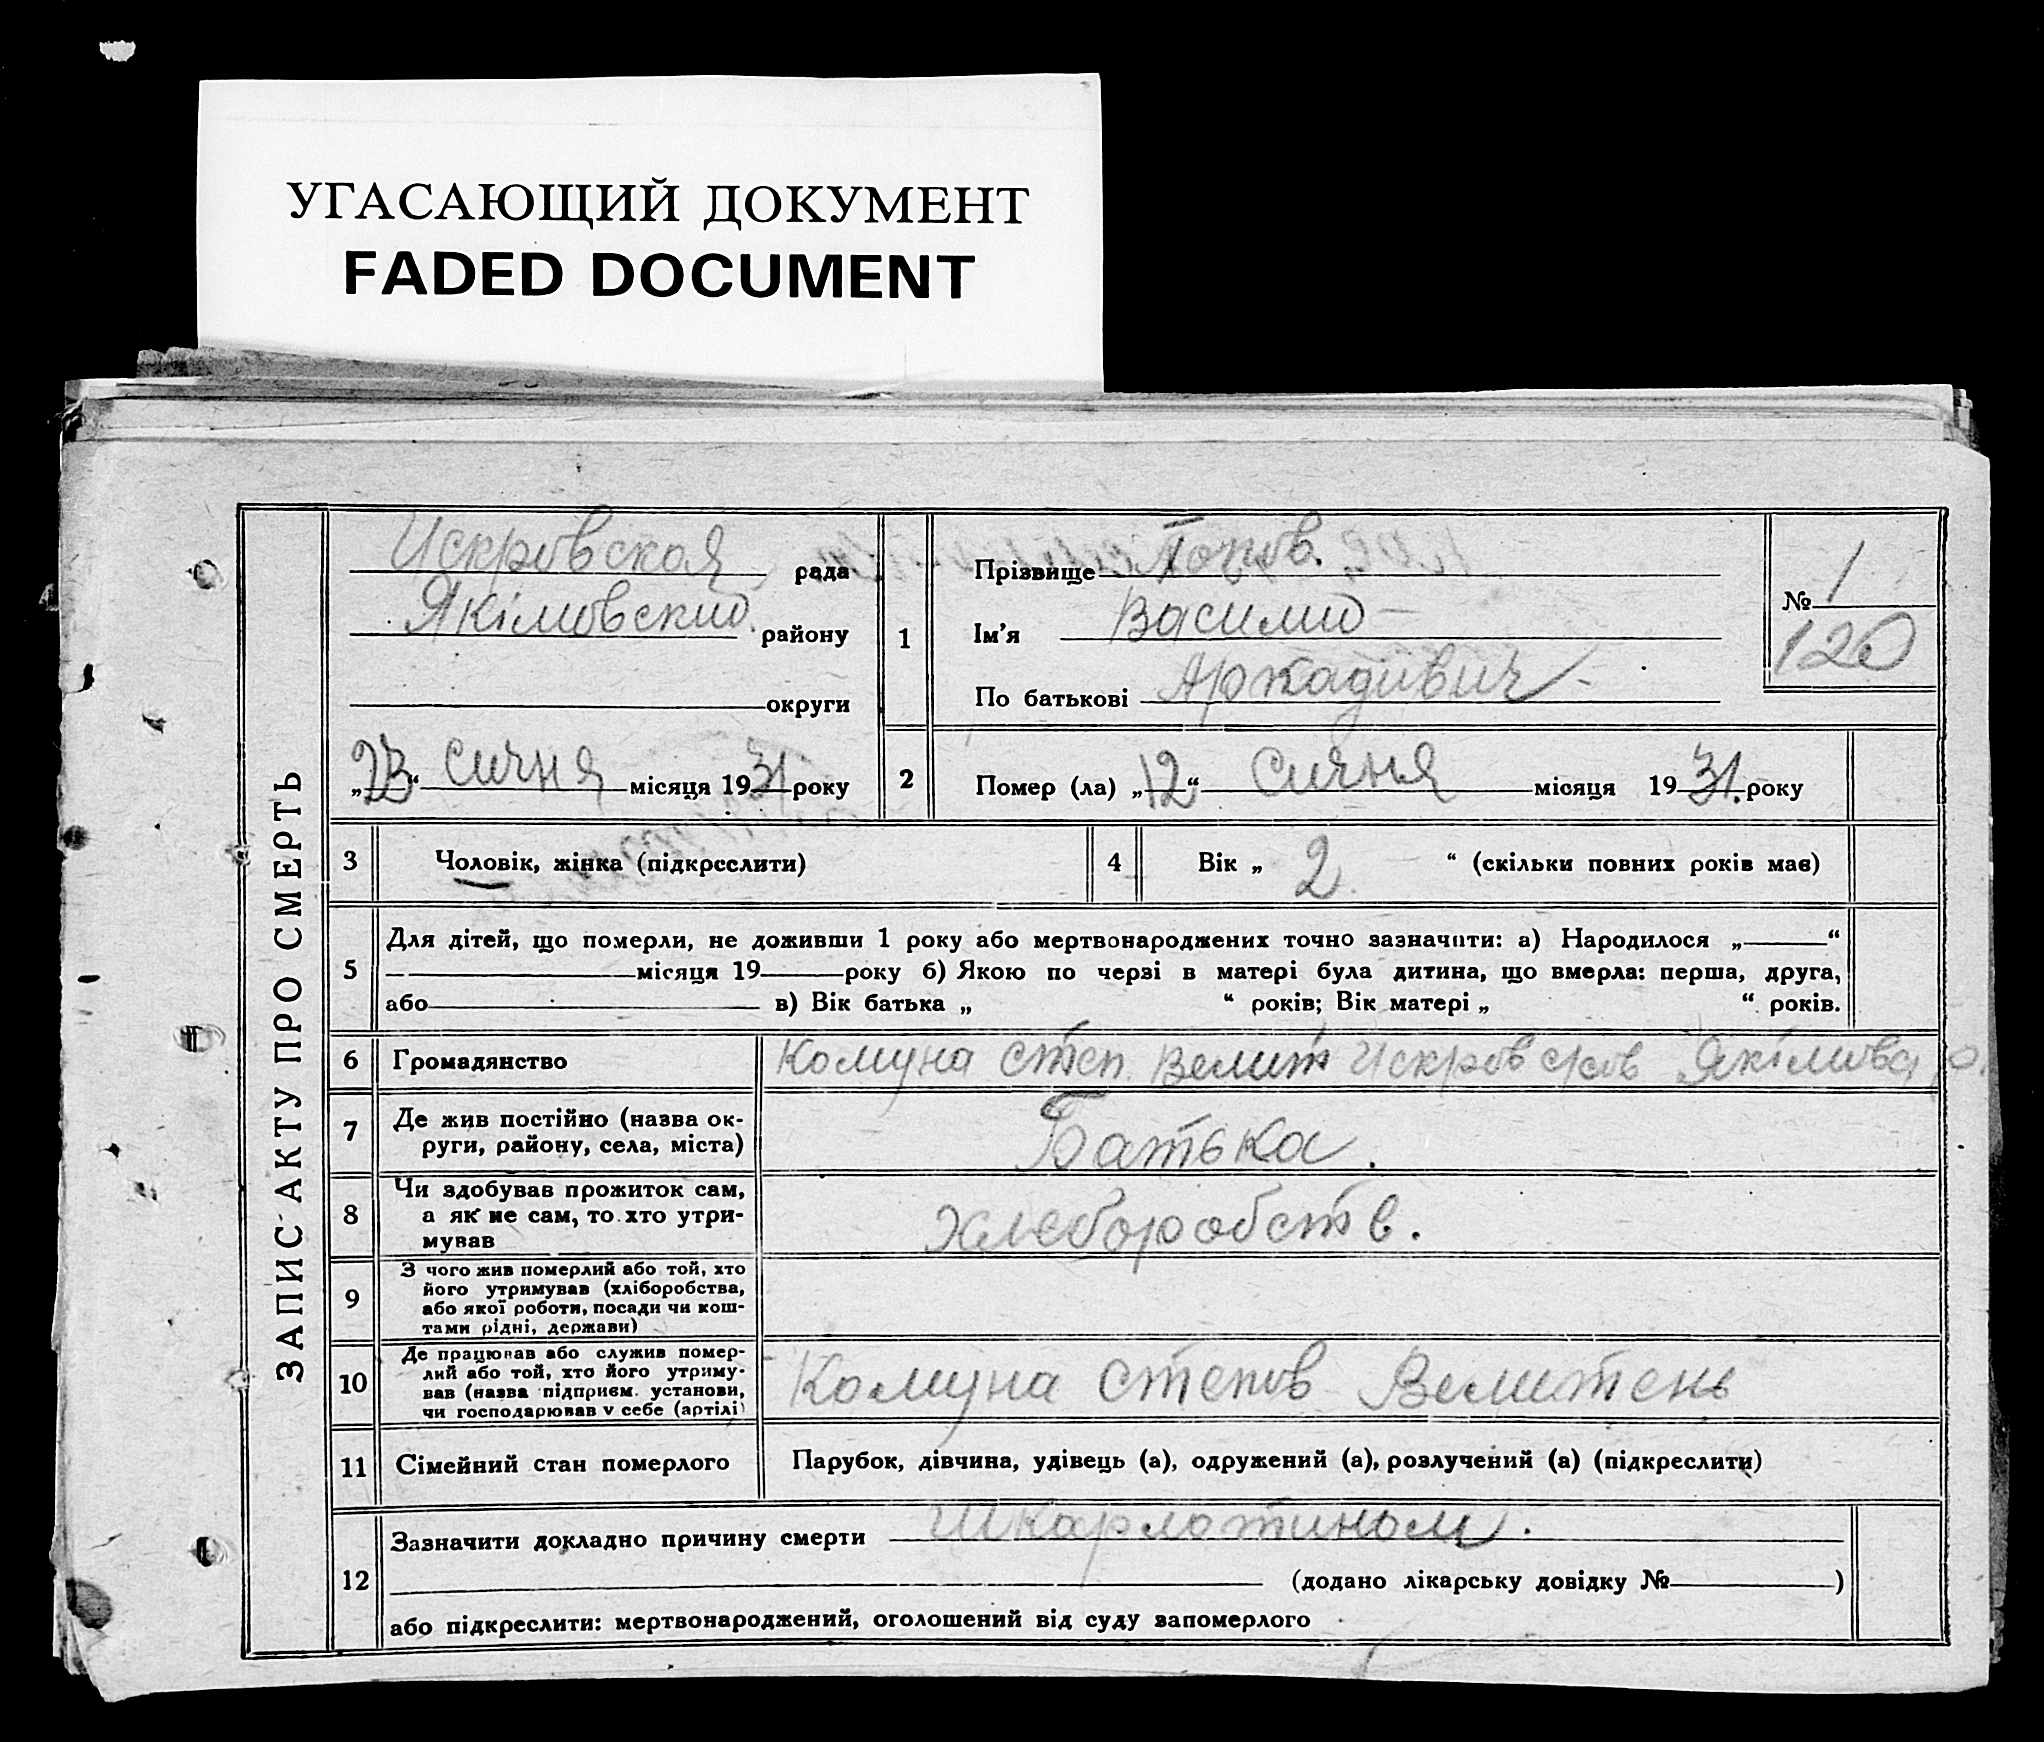 УГАСАЮЩИЙ ДОКУМЕНТ
FADED DOCUMENT
ЗАПИС АКТУ ПРО СМЕРТЬ
Искровская рада
Якімовский району
округи
„23“ сичня місяця 1931 року
1 Прізвище Попов.
Ім'я Василий
По батькові Аркадивич
№ 1
120
2 Помер (ла) „12“ сичня місяця 1931. року
3 Чоловік, жінка (підкреслити)
4 Вік „ 2 “ (скільки повних років має)
5 Для дітей, що померли, не доживши 1 року або мертвонароджених точно зазначити: а) Народилося „ “
місяця 19 року б) Якою по черзі в матері була дитина, що вмерла: перша, друга,
або в) Вік батька „ “ років; Вік матері „ “ років.
6 Громадянство Комуна степ. Искров Якімовс р.
7 Де жив постійно (назва ок-
руги, району, села, міста) Батька.
8 Чи здобував прожиток сам,
а як не сам, то хто утри-
мував хлеборобств.
9 З чого жив померлий або той, хто
його утримував (хліборобства,
або якої роботи, посади чи кош-
тами рідні, держави)
10 Де працював або служив помер-
лий або той, хто його утриму-
вав (назва підприєм. установи,
чи господарював у себе (артілі) Комуна степов
11 Сімейний стан померлого Парубок, дівчина, удівець (а), одружений (а), розлучений (а) (підкреслити)
12 Зазначити докладно причину смерти Шкарлотином.
(додано лікарську довідку № )
або підкреслити: мертвонароджений, оголошений від суду запомерлого